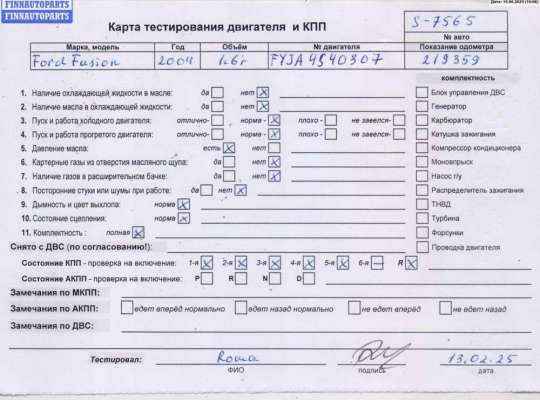 FINNAUTOPARTS
FINNAUTOPARTS
Карта тестирования двигателя и КПП
S-7565
№ авто
Марка, модель Год Объём № двигателя Показание одометра
Ford Fusion 2004 1.6г FYJA 4S40307 219359
комплектность
1. Наличие охлаждающей жидкости в масле: да нет X Блок управления ДВС
2. Наличие масла в охлаждающей жидкости: да нет X Генератор
3. Пуск и работа холодного двигателя: отлично- норма - X плохо - не завелся- Карбюратор
4. Пуск и работа прогретого двигателя: отлично- норма - X плохо - не завелся- Катушка зажигания
5. Давление масла: есть X нет Компрессор кондиционера
6. Картерные газы из отверстия масляного щупа: да нет X Моновпрыск
7. Наличие газов в расширительном бачке: да нет X Насос г/у
8. Посторонние стуки или шумы при работе: да нет X Распределитель зажигания
9. Дымность и цвет выхлопа: норма X ТНВД
10. Состояние сцепления: норма X Турбина
11. Комплектность : полная X Форсунки
Снято с ДВС (по согласованию!): Проводка двигателя
Состояние КПП - проверка на включение: 1-я X 2-я X 3-я X 4-я X 5-я X 6-я — R X
Состояние АКПП - проверка на включение: P R N D
Замечания по МКПП:
Замечания по АКПП: едет вперёд нормально едет назад нормально не едет вперёд не едет назад
Замечания по ДВС:
Тестировал: Roma 13.02.25
ФИО подпись дата